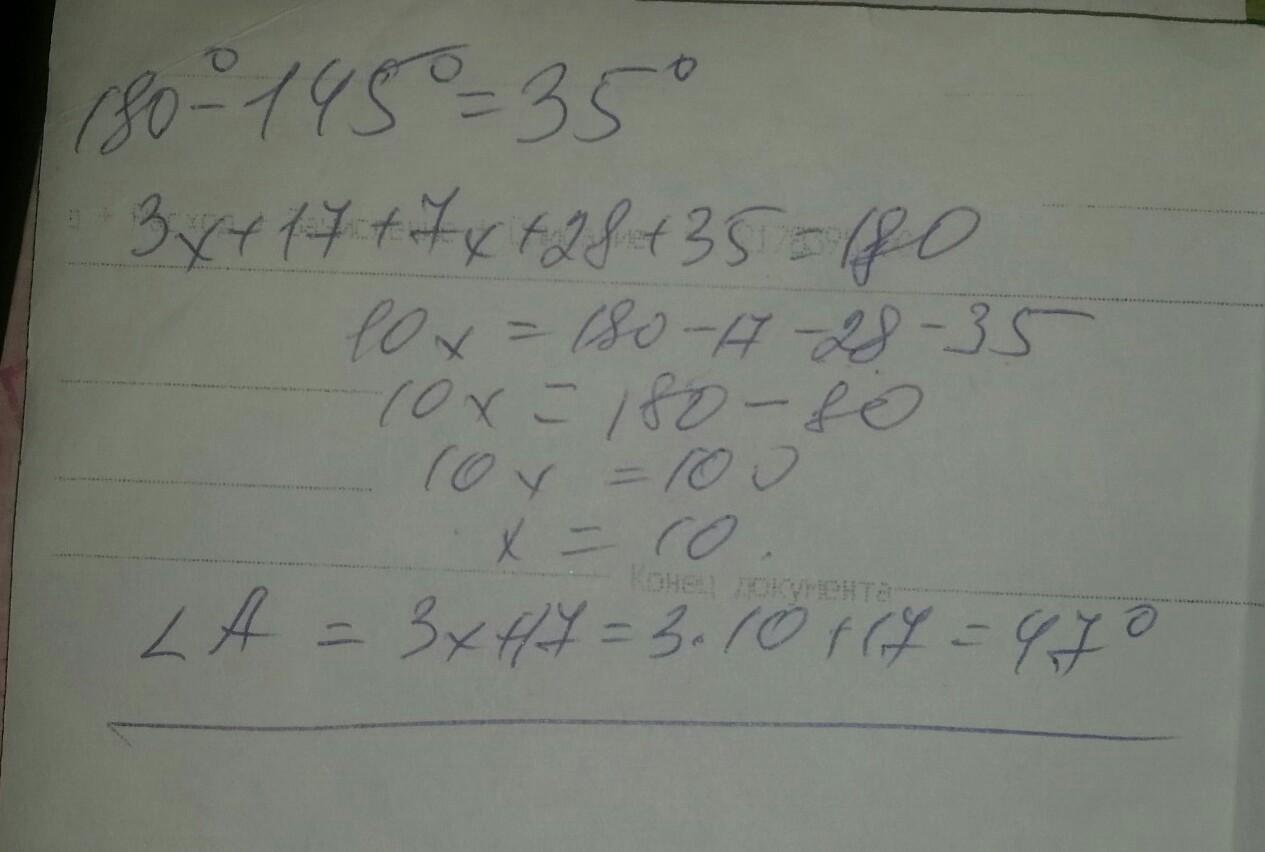 180° - 145° = 35°
3x + 17 + 7x + 28 + 35 = 180
10x = 180 - 17 - 28 - 35
10x = 180 - 80
10x = 100
x = 10.
Конец документа
∠A = 3x + 17 = 3·10 + 17 = 47°